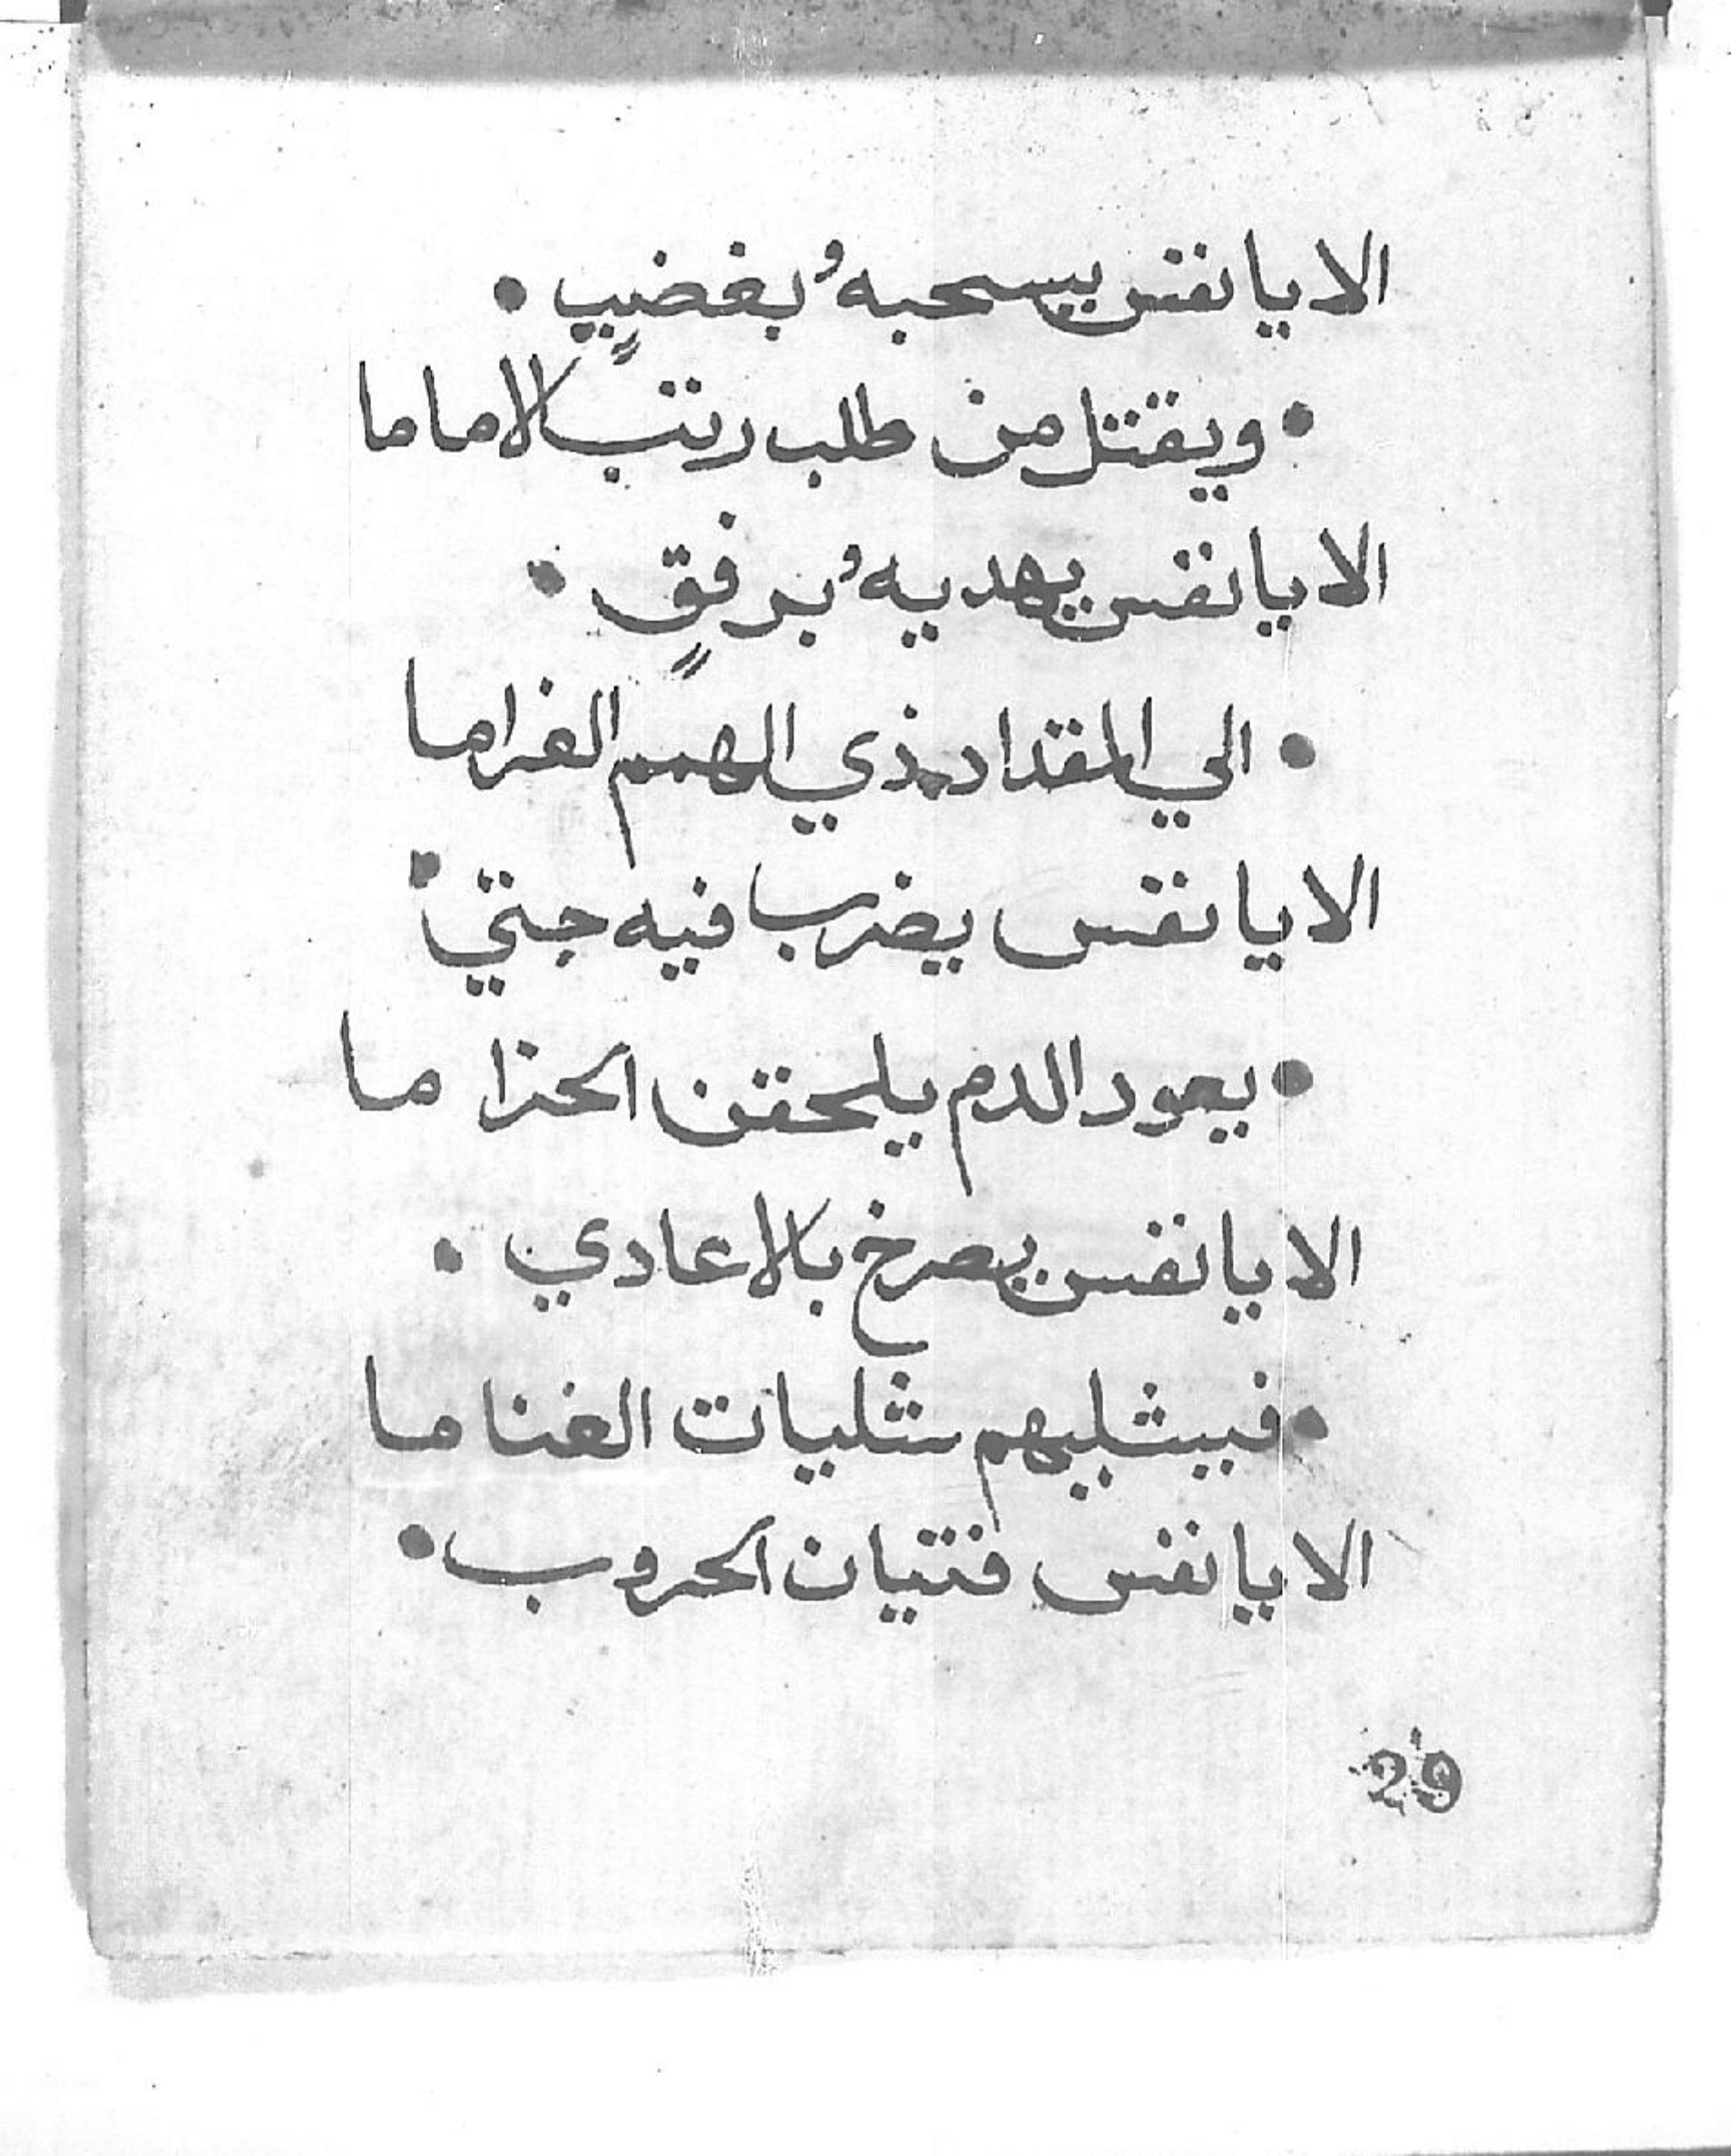 الا يا نفس يسحبهُ بغضبٍ •
• ويقتل من طلب رتب الاماما
الا يا نفس يهديهُ برفقٍ •
• الي المقداد ذي الهمم الغراما
الا يا نفس يضرب فيه جتي •
• يعود الدم يلحقن الحزاما
الا يا نفس يصرخ بالاعادي •
• فيشليهم شليات الغناما
الا يا نفس فتيان الحروب •
29